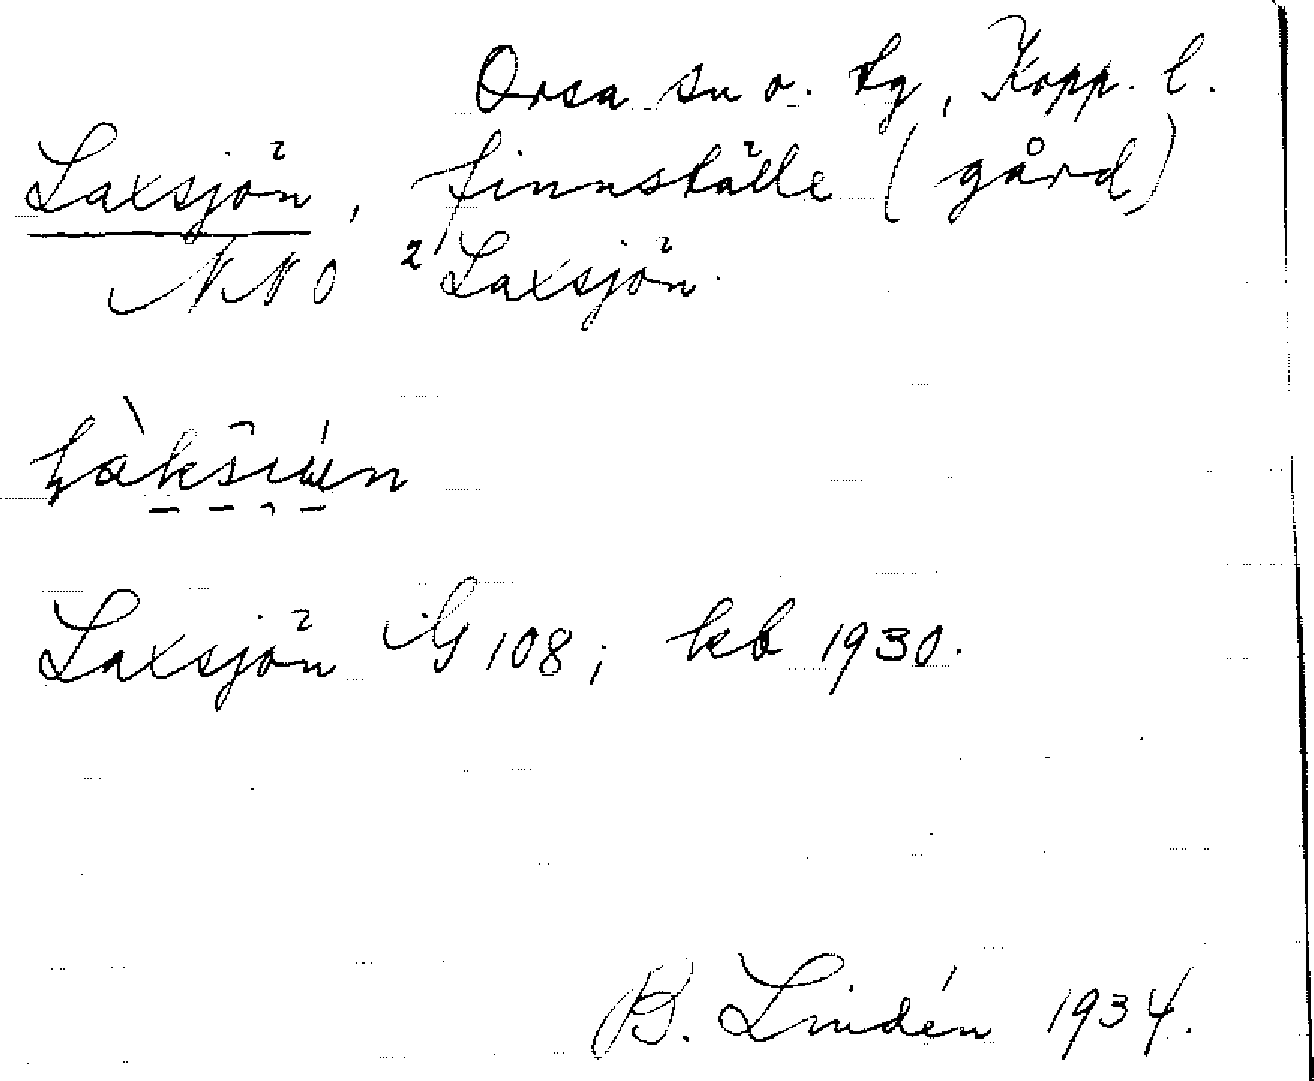 Orsa sn o. tg, Kopp. l.
Laxsjön, finnställe (gård)
NNO ²Laxsjön.
Laxsjön G 108; kb 1930.
B. Lindén 1934.